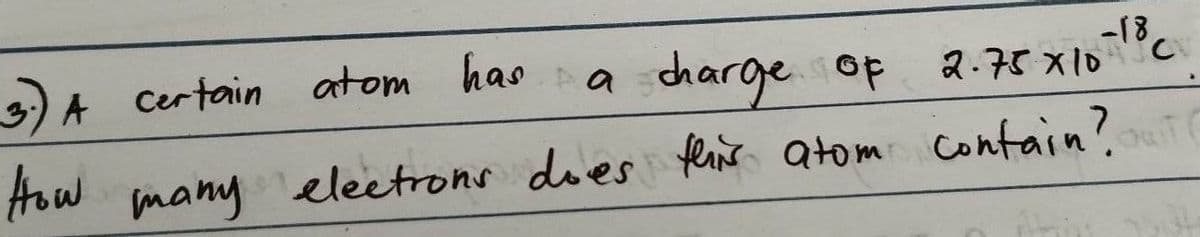 3.) A certain atom has a charge of 2.75 x 10⁻¹⁸ C.
How many electrons does this atom contain?